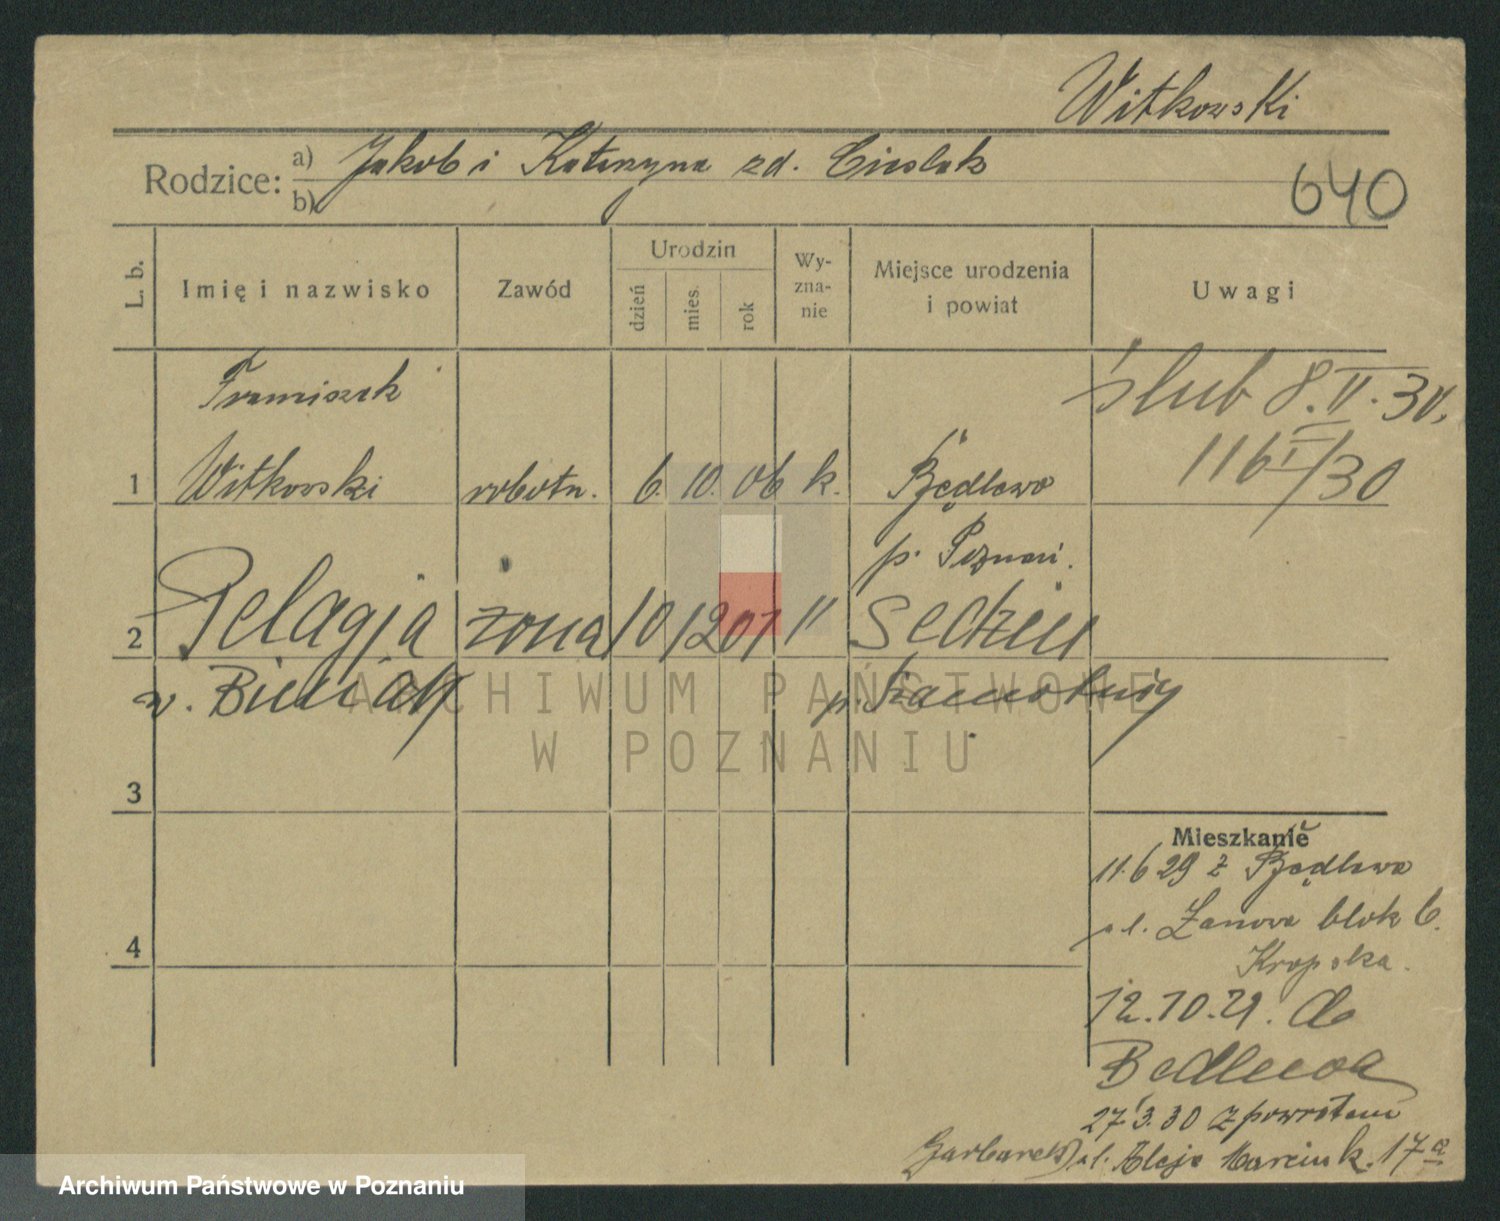 Witkowski
Rodzice: a) Jakob i Katarzyna zd. Cieslak
b)
640
L. b. Imię i nazwisko Zawód Urodzin dzień mies. rok Wy-zna-nie Miejsce urodzenia i powiat Uwagi
Franciszek
ślub 8.II.30.
1 Witkowski robotn. 6. 10. 06 k. Będlewo
116 /30
p. Poznań.
2 Pelagja żona 10 12 01 "
u. Bieniak p. Szamotuły
ARCHIWUM PAŃSTWOWE
W POZNANIU
3
4
Mieszkanie
11.6 29 z Będlewa
ul. Łanowa blok 6.
Kropska.
12.10.29. do
Bedlewa
27.3.30 z powrotem
Garbarek ul. Aleje Marcink. 17a
Archiwum Państwowe w Poznaniu